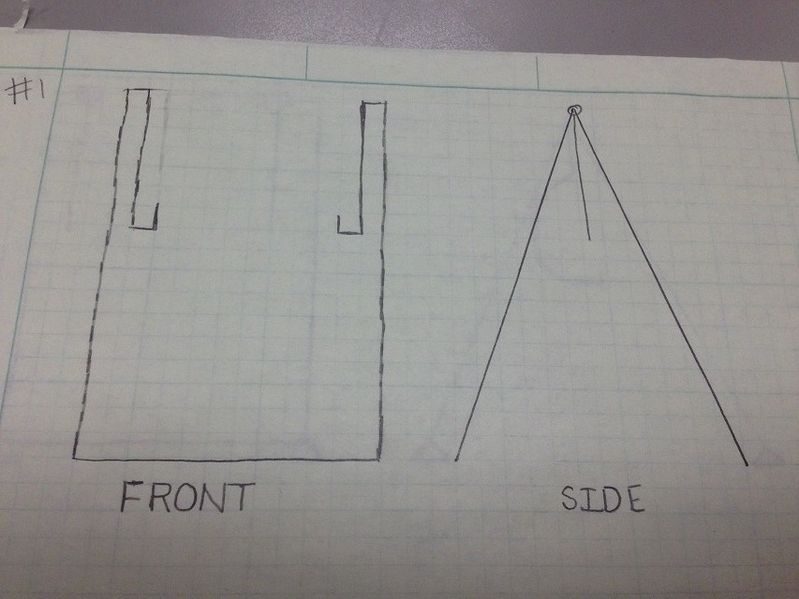 #1
FRONT
SIDE